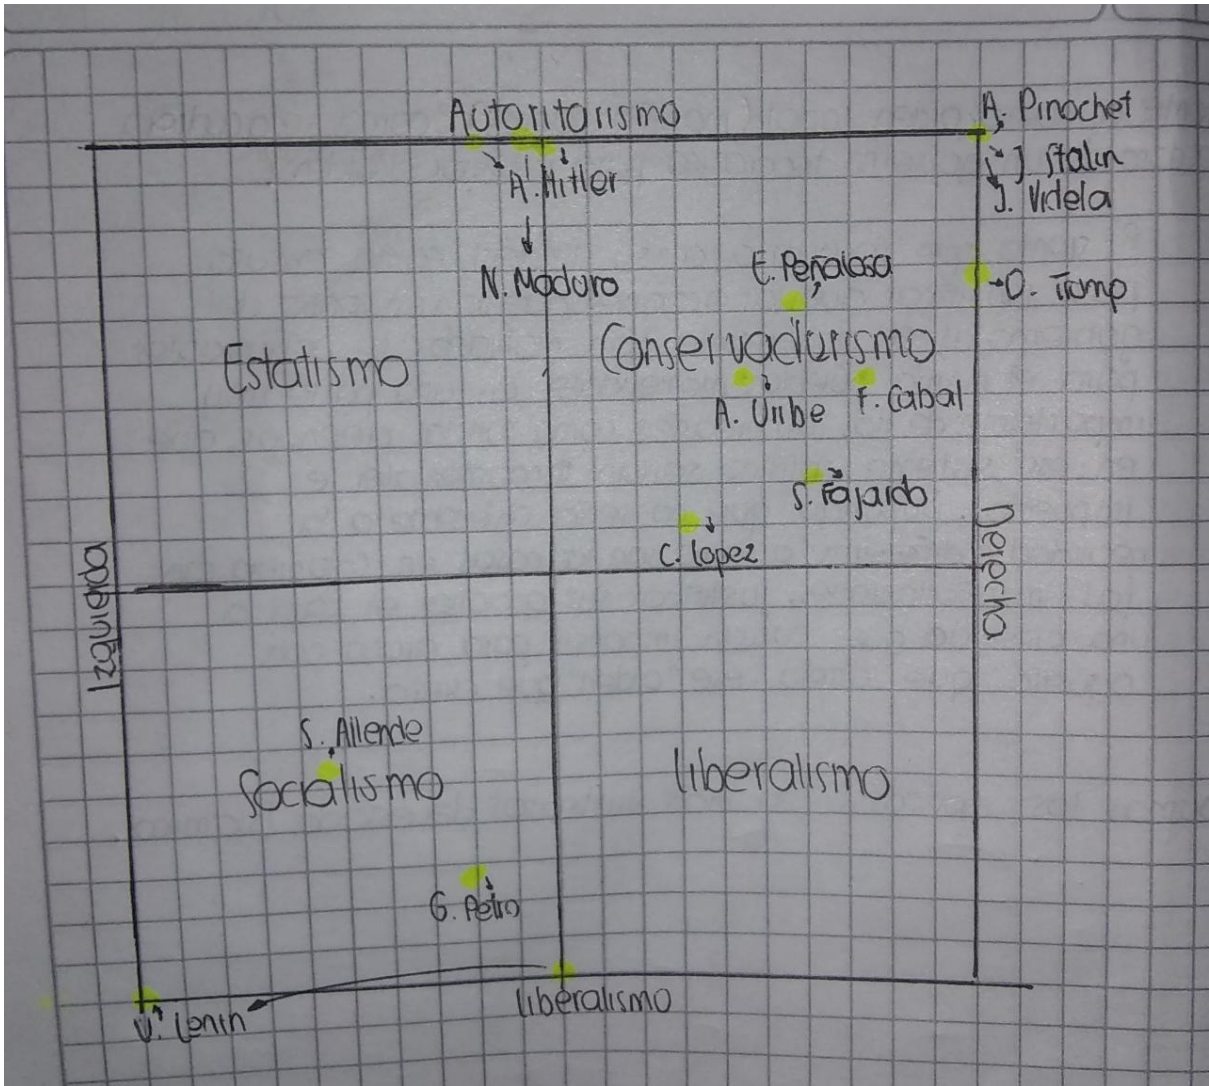 Autoritarismo
A. Pinochet
J. Stalin
J. Videla
A. Hitler
N. Maduro
E. Peñalosa
D. Tromp
Estatismo
Conservadurismo
A. Uribe
F. Cabal
S. Fajardo
C. lopez
Izquierda
Derecha
S. Allende
Socialismo
liberalismo
G. Petro
V. Lenin
liberalismo